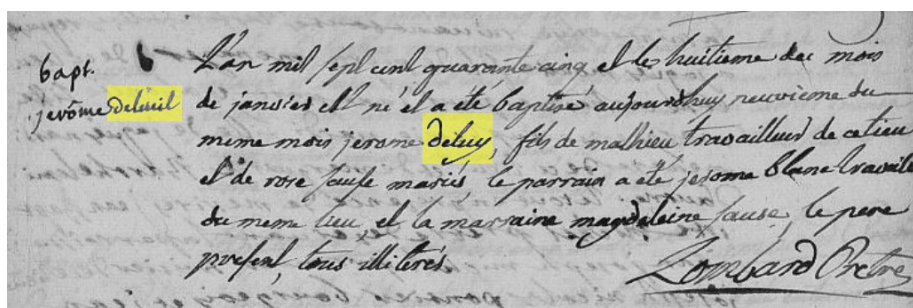 bapt.
jerôme deluil
b L'an mil sept cent quarante cinq et les huitieme du mois
de janvier est né et a été baptisé aujourdhuy neuvieme du
meme mois jerome deluy, fils de mathieu travailleur de ce lieu
et de rose sause mariés, le parrain a été jerome blanc travaille
du meme lieu, et la marraine magdeleine sause, le pere
present, tous illiterés.
Lombard Pretre